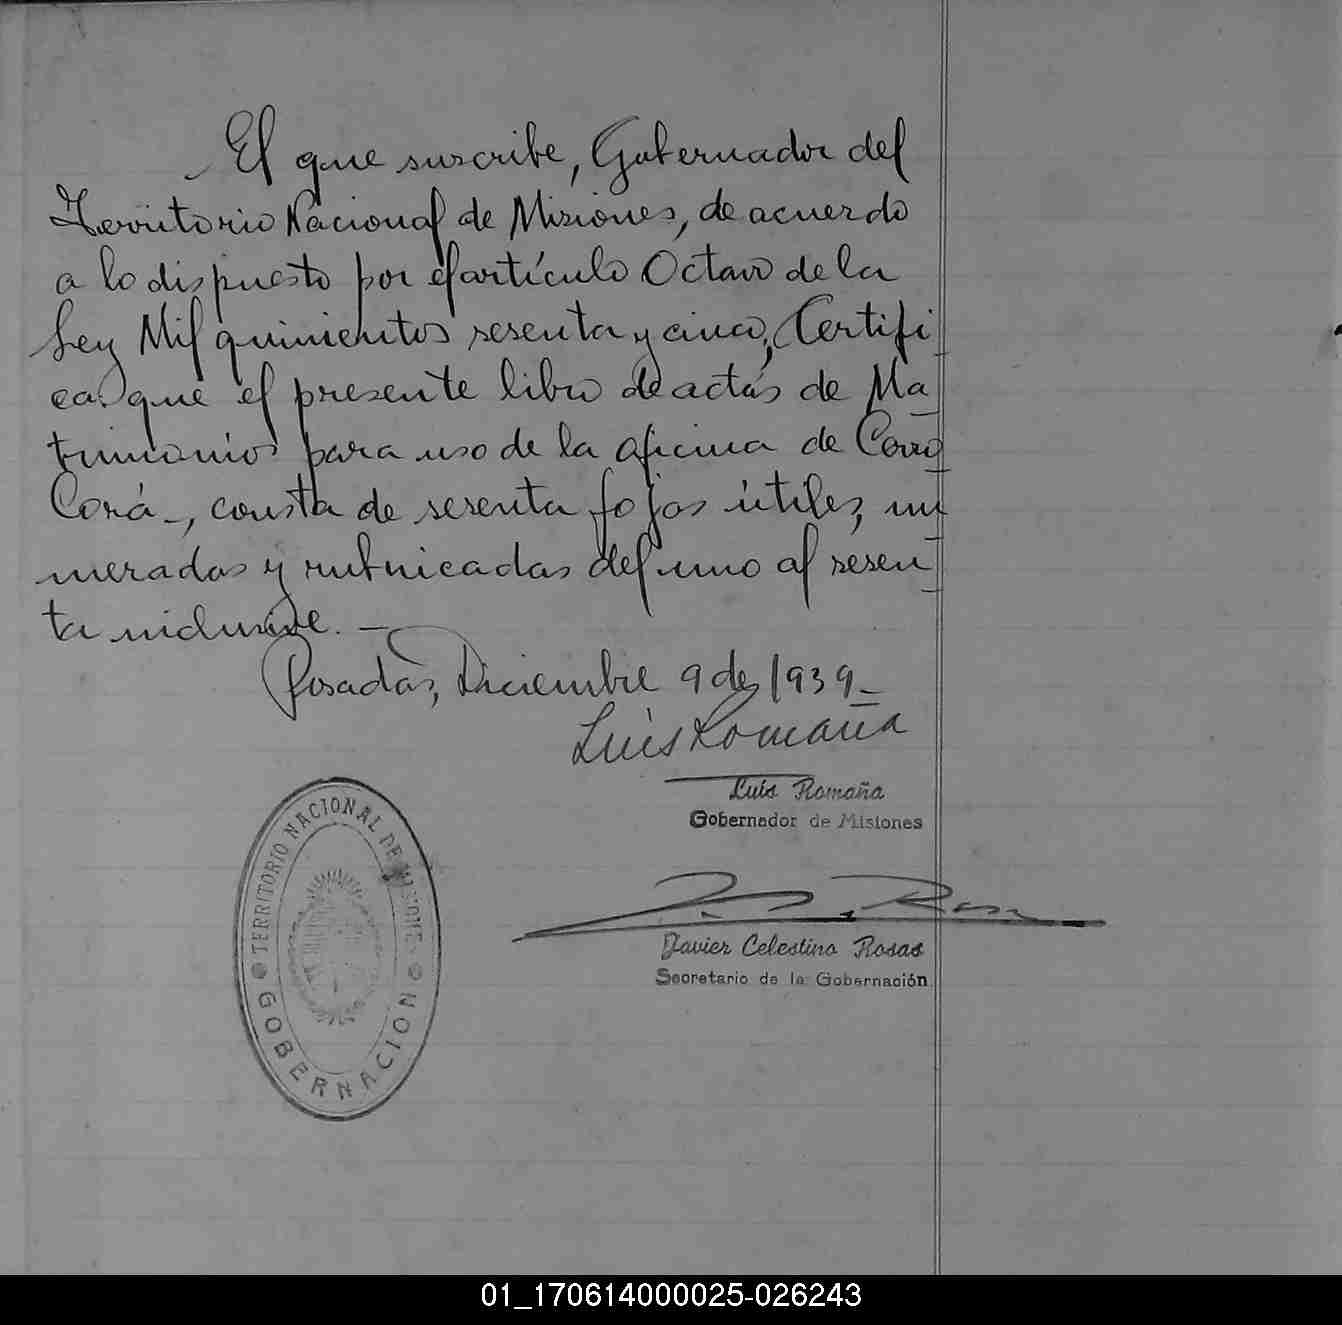 El que suscribe, Gobernador del
Territorio Nacional de Misiones, de acuerdo
a lo dispuesto por el artículo Octavo de la
Ley Mil quinientos sesenta y cinco, Certifi
ca que el presente libro de actas de Ma_
trimonios para uso de la oficina de Corro
Corá_, consta de sesenta fojas útiles, nu
meradas y rubricadas del uno al sesen_
ta inclusive. —
Posadas, Diciembre 9 de 1939_
Luis Romaña
Luis Romaña
Gobernador de Misiones
TERRITORIO NACIONAL DE MISIONES
GOBERNACION
Javier Celestino Rosas
Secretario de la Gobernación
01_170614000025-026243